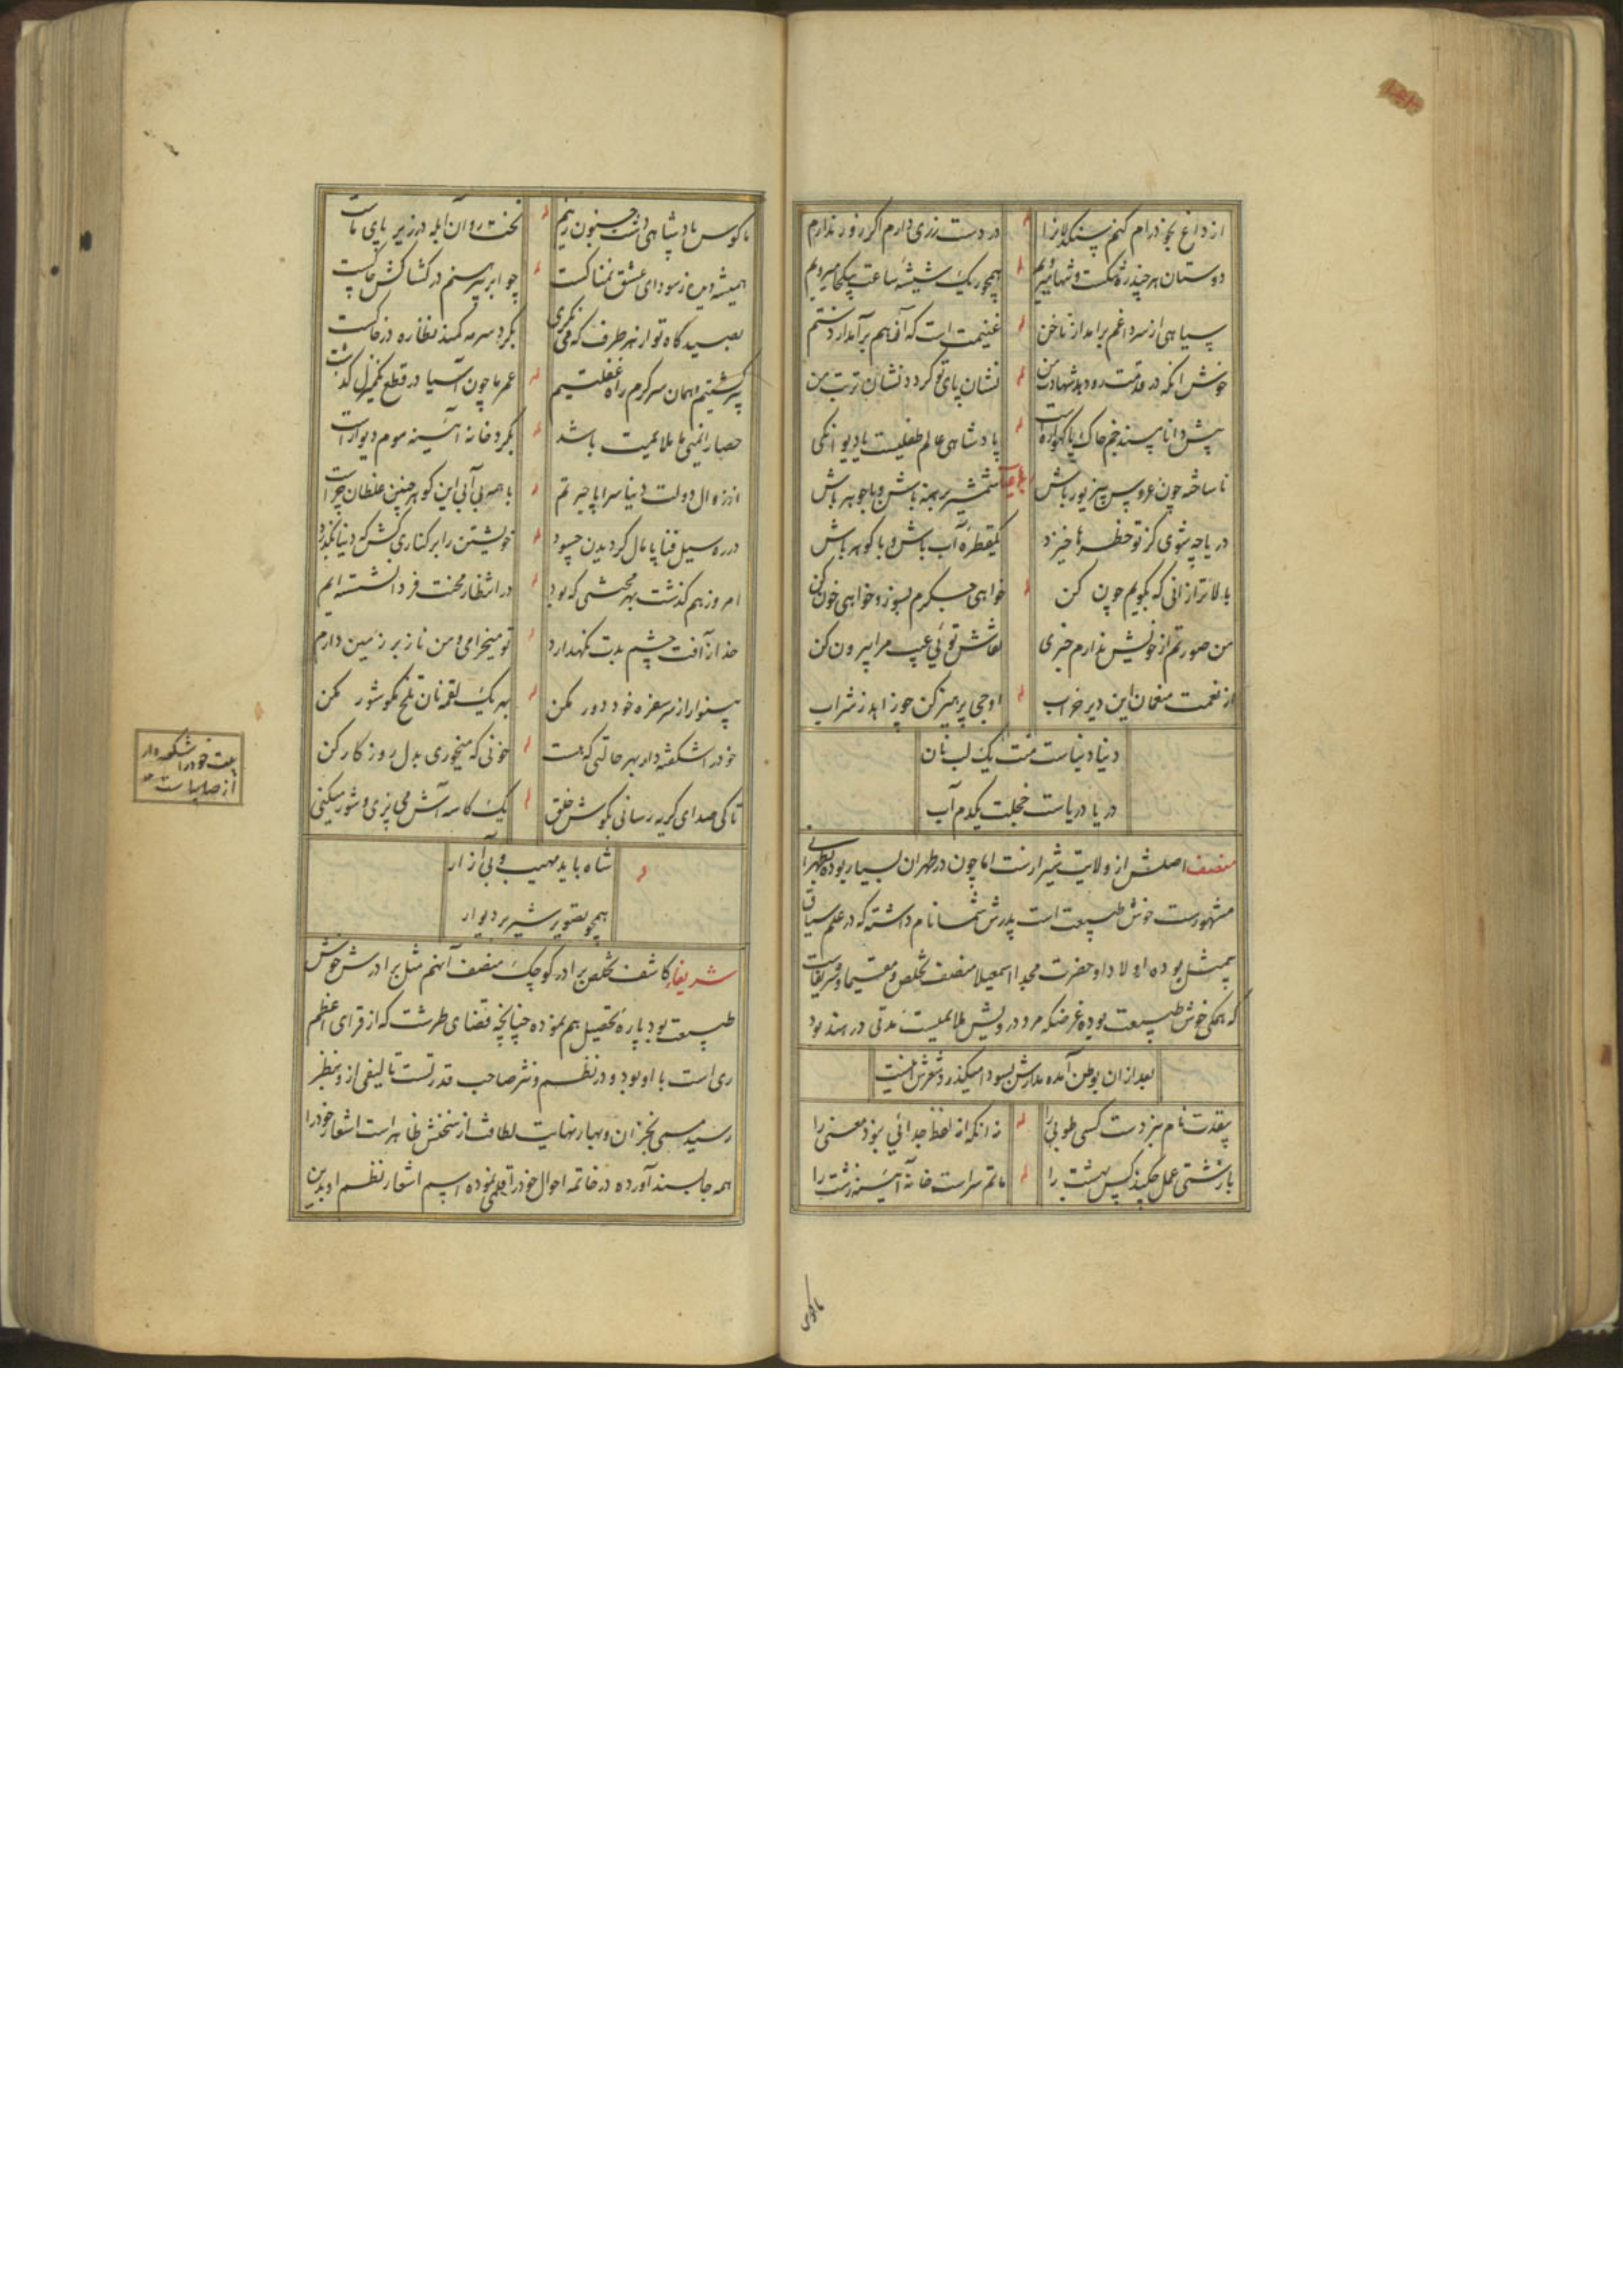 از داغ بخود رام کنم سنگدلانرا در دست زری دارم اگر زور ندارم
دوستان هر چند در شکست و تنها میرویم همچو ریک شیشه ساعت بیکجا میرویم
سیاهی از سر داغم برامد از ناخن غنیمت است که آنهم برآمد از دستم
خوش آنکه در قدمت رو دهد شهادت من نشان پای تو گردد نشان تربت من
پیش دانا پسند جم خاک با گهواره است پادشاهی عالم طفلیست یا دیوانگی
رباعی
ناساخته چون عروس بی زیور باش شمشیر برهنه باش و با جوهر باش
دریا چه شوی کز تو خطرها خیزد یکقطره آب باش و با گوهر باش
بالاتر از آنی که بگویم چون کن خواهی جگرم بسوز و خواهی خون کن
من صورتم از خویش ندارم خبری نقاش توئی عیب مرا بیرون کن
از نعمت منعمان این دیر خراب اوجی پرهیز کن چو زاهد ز شراب
دنیا دنیاست منت یک لب نان
دریا دریاست خجلت یکدم آب
منصف اصلش از ولایت شیرازست اما چون در طهران بسیار بوده بطهرانی
مشهورست خوش طبیعت است پدرش شمسا نام داشته که در علم سیاق
بیمثل بوده اولاد او حضرت محمد اسمعیلا منصف تخلص و مقیما و شریفاست
که همگی خوش طبیعت بوده غرضکه مرد درویش ملایمیست مدتی در هند بود
بعد از ان بوطن آمده مدارش بسودا میگذرد شعرش اینست
بقدت نام نبردست کسی طوبی را زانکه از لفظ جدائی نبود معنی را
با زشتی عمل چکند کس بهشت را ماتم سراست خانه آیینه زشت را
ماکوس
ما کوس پادشاهی دشت جنون زنیم تخت روان آبله در زیر پای ماست
همیشه دیده ز سودای عشق نمناکست چو ابر پیرهنم در کشاکش چاکست
بصیدگاه تو از هر طرف که می نگری بگرد سرمه کمند نظاره در خاکست
پیر گشتیم و همان سرگرم راه غفلتیم عمر ما چون آسیا در قطع یکمنزل گذشت
حصار ایمنی ما ملایمت باشد بگرد خانه آئینه موم دیوار است
از زوال دولت دنیا سراپا حیرتم با همه بی آبی این گوهر چنین غلطان چراست
در ره سیل فنا پامال گردیدن چسود خویشتن را بر کناری کش که دنیا بگذرد
امروز هم گذشت بهر محنتی که بود در انتظار محنت فردا نشسته ایم
خدا از آفت چشم بدت نگهدارد تو میخرامی و من ناز بر زمین دارم
بینوا را از سر سفره خود دور مکن بهر یک لقمه نان تلخ مگو شور مکن
خود را شکفته دار بهر حالتی که هست خونی که میخوری بدل روزگار کن
تا کی صدای گریه رسانی بگوش خلق یک کاسه آش می پزی و شور میکنی
شاه باید مهیب و بی آزار
همچو تصویر شیر بر دیوار
شریفا کاشف تخلص برادر کوچک منصف آنهم مثل برادرش خوش
طبیعت بود پاره تحصیل هم نموده چنانچه قضای طرشت که از قرای اعظم
ری است با او بود و در نظم و نثر صاحب قدرتست تالیفی ازو بنظر
رسید مسمی بخزان و بهار نهایت لطافت از سخنش ظاهر است اشعار خود را
همه جا بسند آورده در خاتمه احوال خود را قلمی نموده اسم اشعار نظم او بدین
بیت خود را شکفته دار
از صایباست